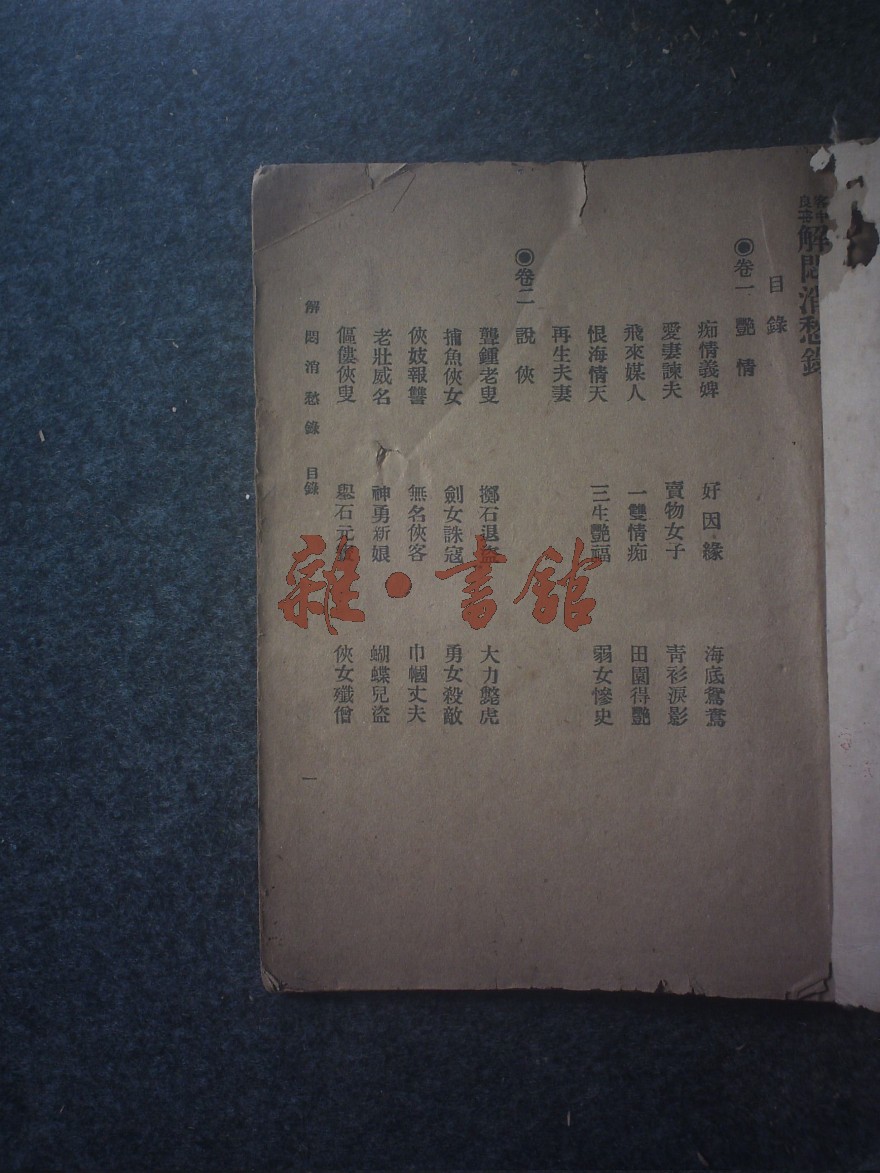 解悶消愁錄
目錄
◉卷一 艷情
痴情義婢 好因緣 海底鴛鴦
愛妻諫夫 賣物女子 青衫淚影
飛來媒人 一雙情痴 田園得艷
恨海情天 三生艷福 弱女慘史
再生夫妻
◉卷二 說俠
龔鍾老叟 擲石退盜 大力斃虎
捕魚俠女 劍女誅寇 勇女殺敵
俠妓報讐 無名俠客 巾幗丈夫
老壯威名 神勇新娘 蝴蝶兒盜
傴僂俠叟 舉石元 俠女殲僧
解悶消愁錄 目錄 一
雜·書館